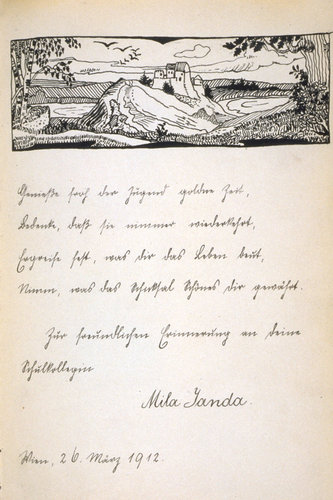 Genieße froh der Jugend goldne Zeit,
Bedenke, daß sie nimmer wiederkehrt,
Ergreife fest, was dir das Leben beut,
Nimm, was das Schicksal Schönes dir gewährt.
Zur freundlichen Erinnerung an deine
Schulkollegin
Mila Janda.
Wien, 26. März 1912.